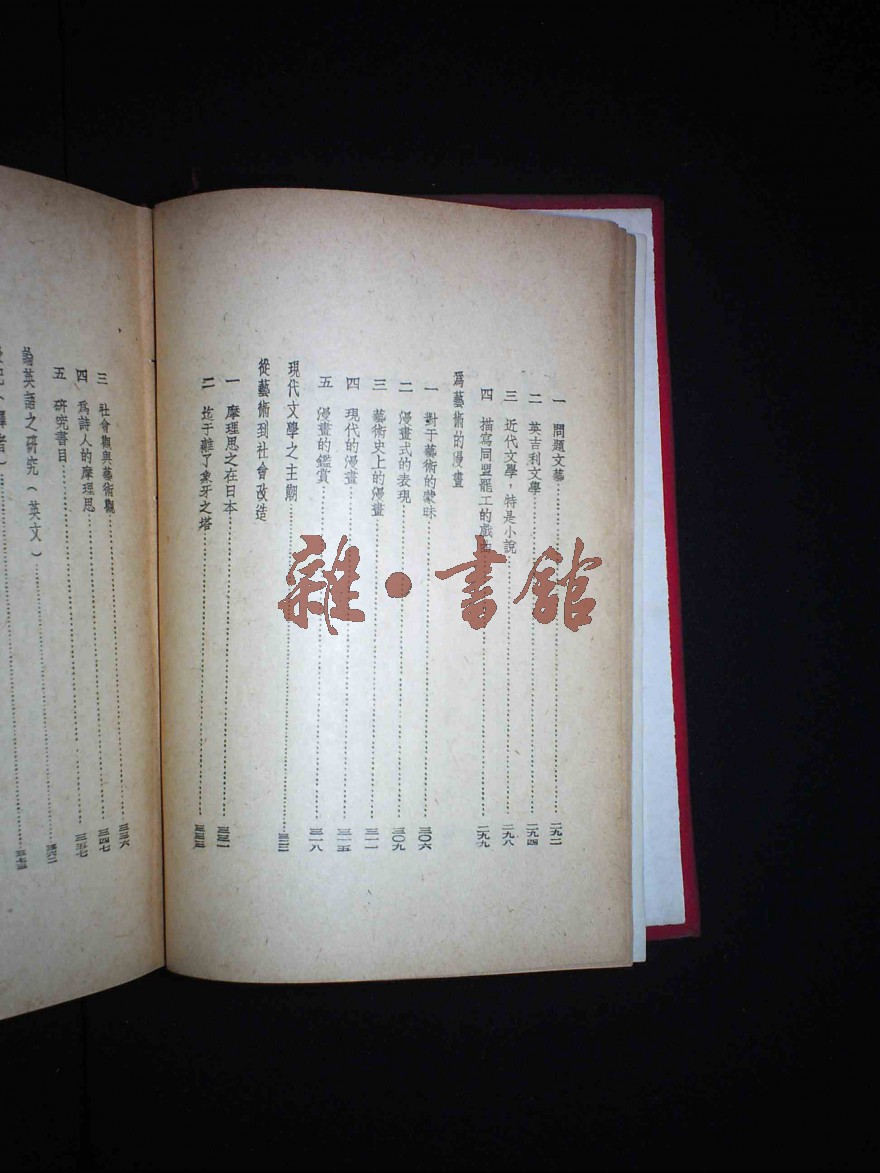 一 問題文藝 二九二
二 英吉利文學 二九四
三 近代文學,特是小說 二九八
四 描寫同盟罷工的戲曲 二九九
爲藝術的漫畫
一 對于藝術的蒙昧 三〇六
二 漫畫式的表現 三〇九
三 藝術史上的漫畫 三一一
四 現代的漫畫 三一五
五 漫畫的鑑賞 三一八
現代文學之主潮
從藝術到社會改造
一 摩理思之在日本
二 迄于離了象牙之塔
三 社會觀與藝術觀 三三六
四 爲詩人的摩理思 三四七
五 研究書目 三五七
論英語之研究(英文)
雜·書館